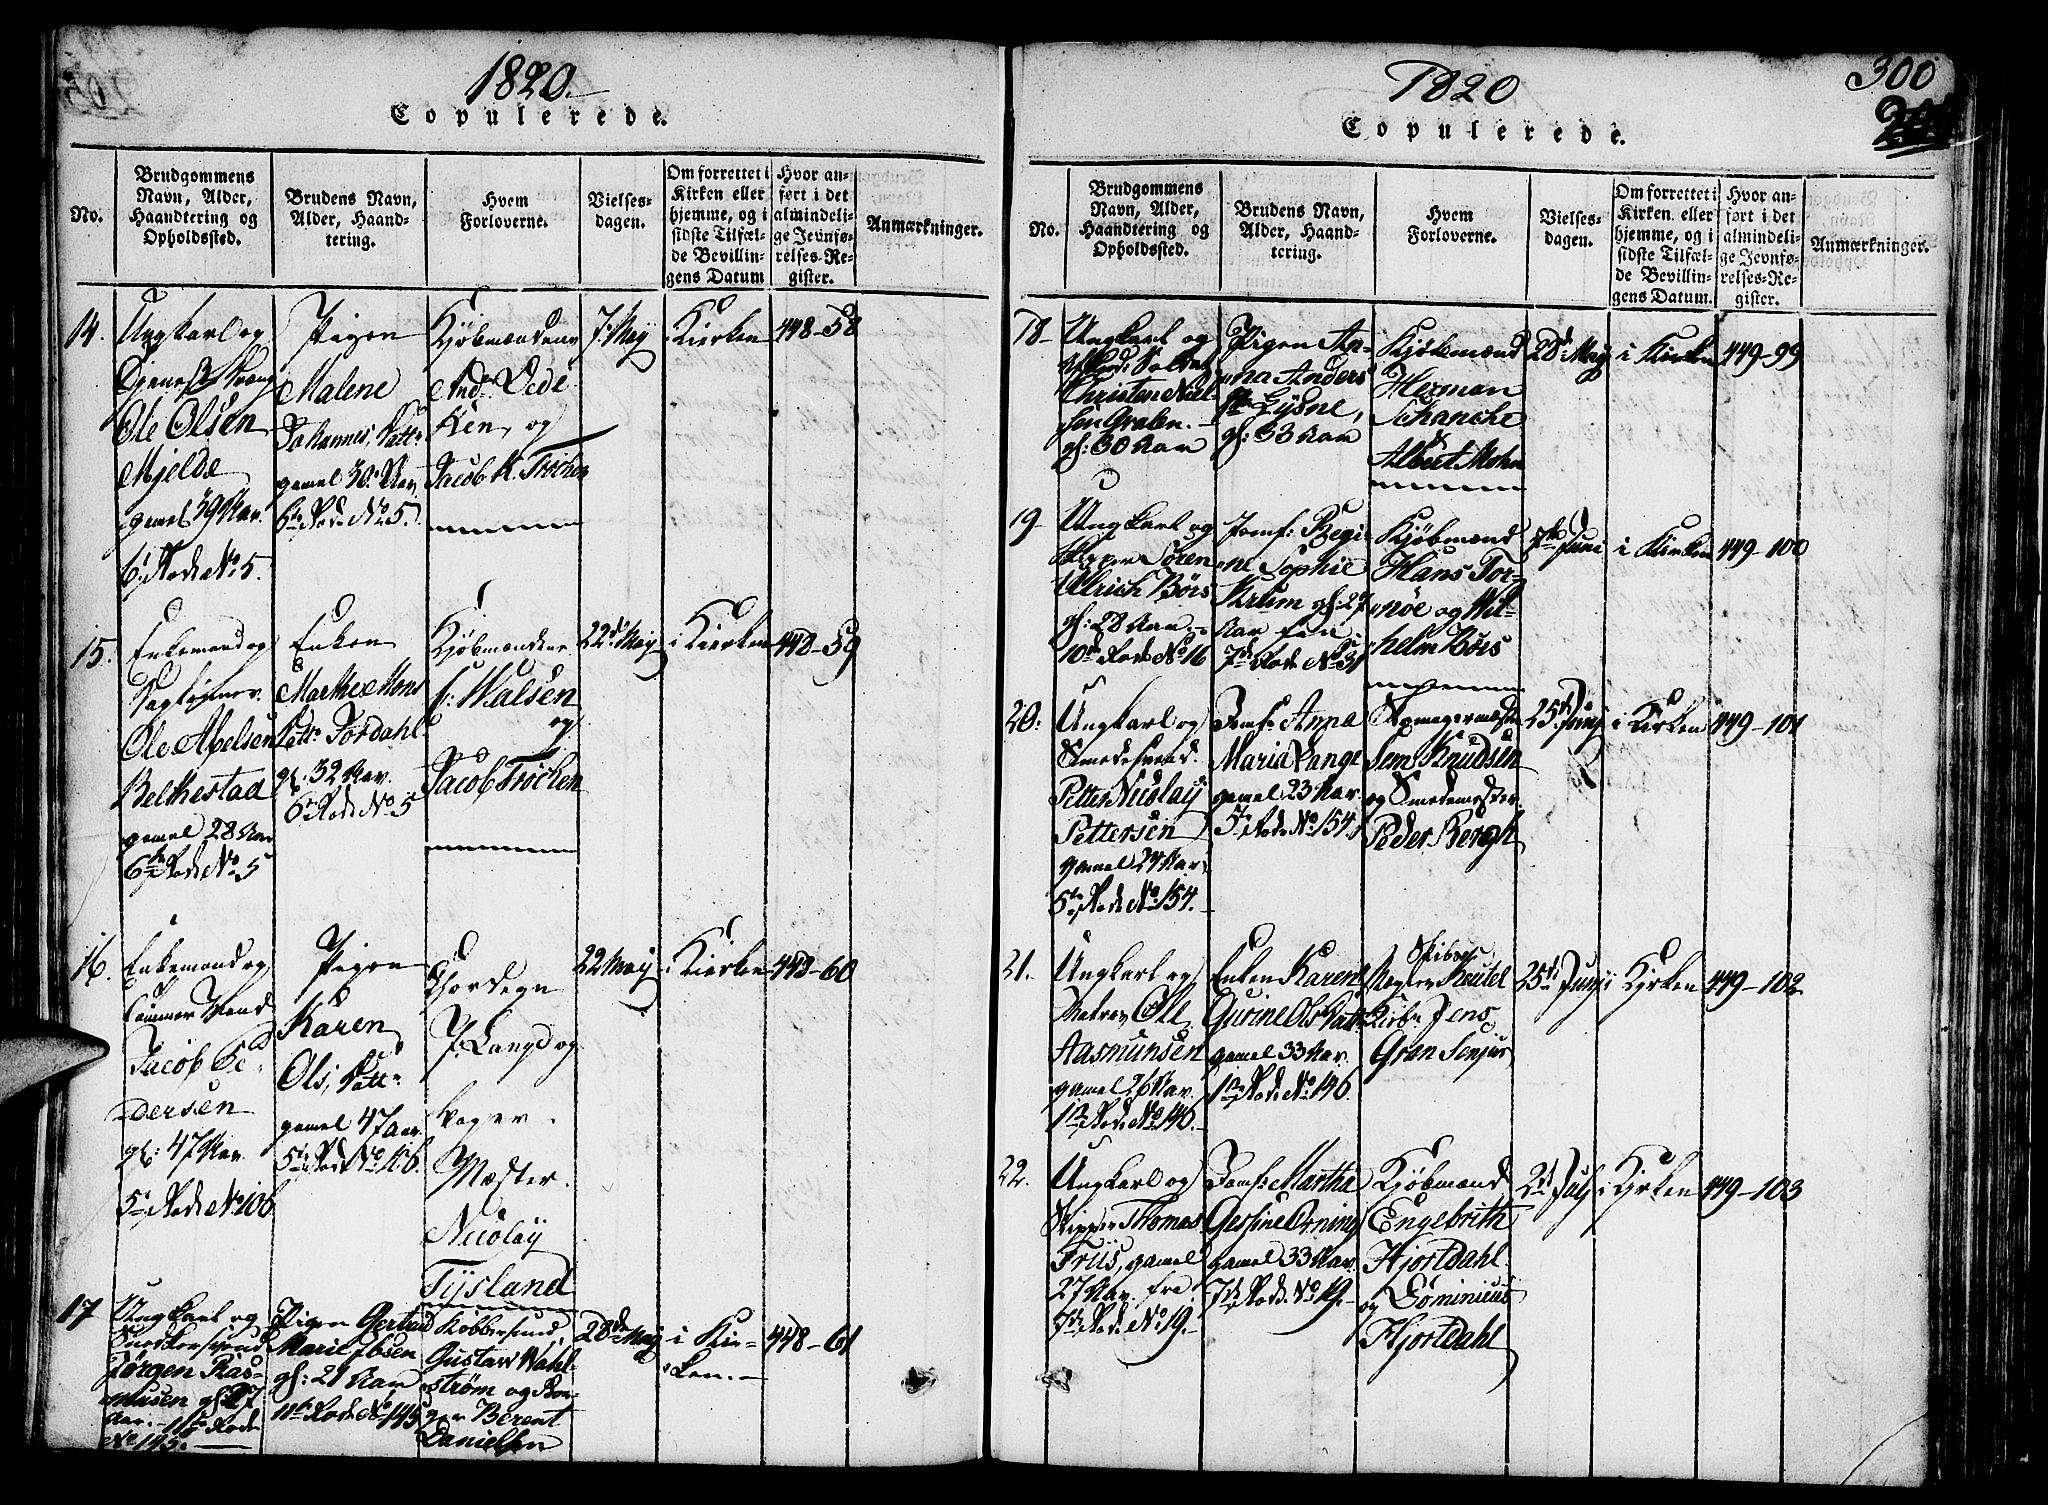 1820.
Copulerede.
No.
Brudgommens
Navn, Alder,
Haandtering og
Opholdssted.
Brudens Navn,
Alder, Haand-
tering.
Hvem
Forloverne.
Vielses-
dagen.
Om forrettet i
Kirken eller
hjemme, og i
sidste Tilfæl-
de Bevillin-
gens Datum
Hvor an-
ført i det
almindeli-
ge Jevnfø-
relses-Re-
gister.
Anmærkninger.
14.
Ungkarl og
Ole Olsen
Mjelde
gamel 39 Aar.
6te Rode No 5.
Pigen
Malene
Johannes Datt.
gamel 30 Aar,
6te Rode No 5.
Kjøbmændene
And. Dede
Ken, og
Jacob K. Trøchen
7. May
i Kierken
448-58
15.
Enkemand og
Ole Abelsen
Belkestad
gamel 28 Aar
6te Rode No 5
Enken
Marthe Mons
Datt. Fordahl.
gl. 32 Aar.
6te Rode No 5
Kjøbmændene
Walsen
og
Jacob Trøchen
22d May
i Kierken
448-59
16.
Enkemand og
Tømmer Svend
Jacob Pe-
dersen
gl: 47 Aar.
5te Rode No 106
Pigen
Karen
Ols. Datt.
gamel 47 aar.
5te Rode No 106.
P. Lang og
Mæster
Nicolay
Tysland
22 May
i Kierken
448-60
17
Ungkarl og
Snedkersvend
Jørgen Ras-
musen gl. 27
Aar. - 11te Rode
No 145.
Pigen Gertrud
Marie Ibsen
gl: 21 Aar
11te Rode No 145
Kobbersmed
Gustav Wahl-
strøm og Bor-
ger Berent
Danielsen
28de May
i Kir-
ken.
448-61
1820
300
Copulerede.
No.
Brudgommens
Navn, Alder,
Haandtering og
Opholdssted.
Brudens Navn,
Alder, Haand-
tering.
Hvem
Forloverne.
Vielses-
dagen.
Om forrettet i
Kirken eller
hjemme, og i
sidste Tilfæl-
de Bevillin-
gens Datum.
Hvor an-
ført i det
almindeli-
ge Jevnfø-
relses-Re-
gister.
Anmærkninger.
18.
Ungkarl og
Christen Niel-
sen
gl: 30 Aar
Pigen An-
na Anders
Lysne,
gl: 33 Aar
Kjøbmænd
Herman
Schancke
Albert Mohn
28d May
i Kirken
449-99
19
Ungkarl og
Skipper Søren
Ulrich Børs
gl: 28 Aar.
10de Rode No 16
Jomf: Regi-
ne Sophie
Krum gl: 27
Aar
7de Rode No 31
Kjøbmænd
Hans Tor-
nøe og Wil-
helm Børs
7de Juni
i Kirken
449-100
20.
Ungkarl og
Smedesvend
Petter Nicolay
Pettersen
gamel 24 Aar
5te Rode No 154.
Jomf: Anna
Maria Lange
gamel 23 Aar.
5te Rode No 154.
Skomagermester
Sem Knudsen
og Smedemester
Peder Bergh
25d Juny
i Kirken
449-101
21.
Ungkarl og
Matros Ole
Aasmunsen
gamel 26 Aar.
1te Rode No 146.
Enken Karen
Gurine Ols Datt.
gamel 33 Aar.
1te Rode No 146.
Skibs
Mægler Reutel
Jens
Gran Senjur
25de Juny
i Kirken
449-102
22.
Ungkarl og
Skipper Thomas
Friis, gamel
27 Aar.
7de Rode No 19.
Jomf: Martha
Gesine Orning
gamel 33 Aar.
7de Rode No 19.
Kjøbmænd
Engebrith
Hjortdahl
og Dominicus
Hjortdahl
2d July
i Kirken
449-103